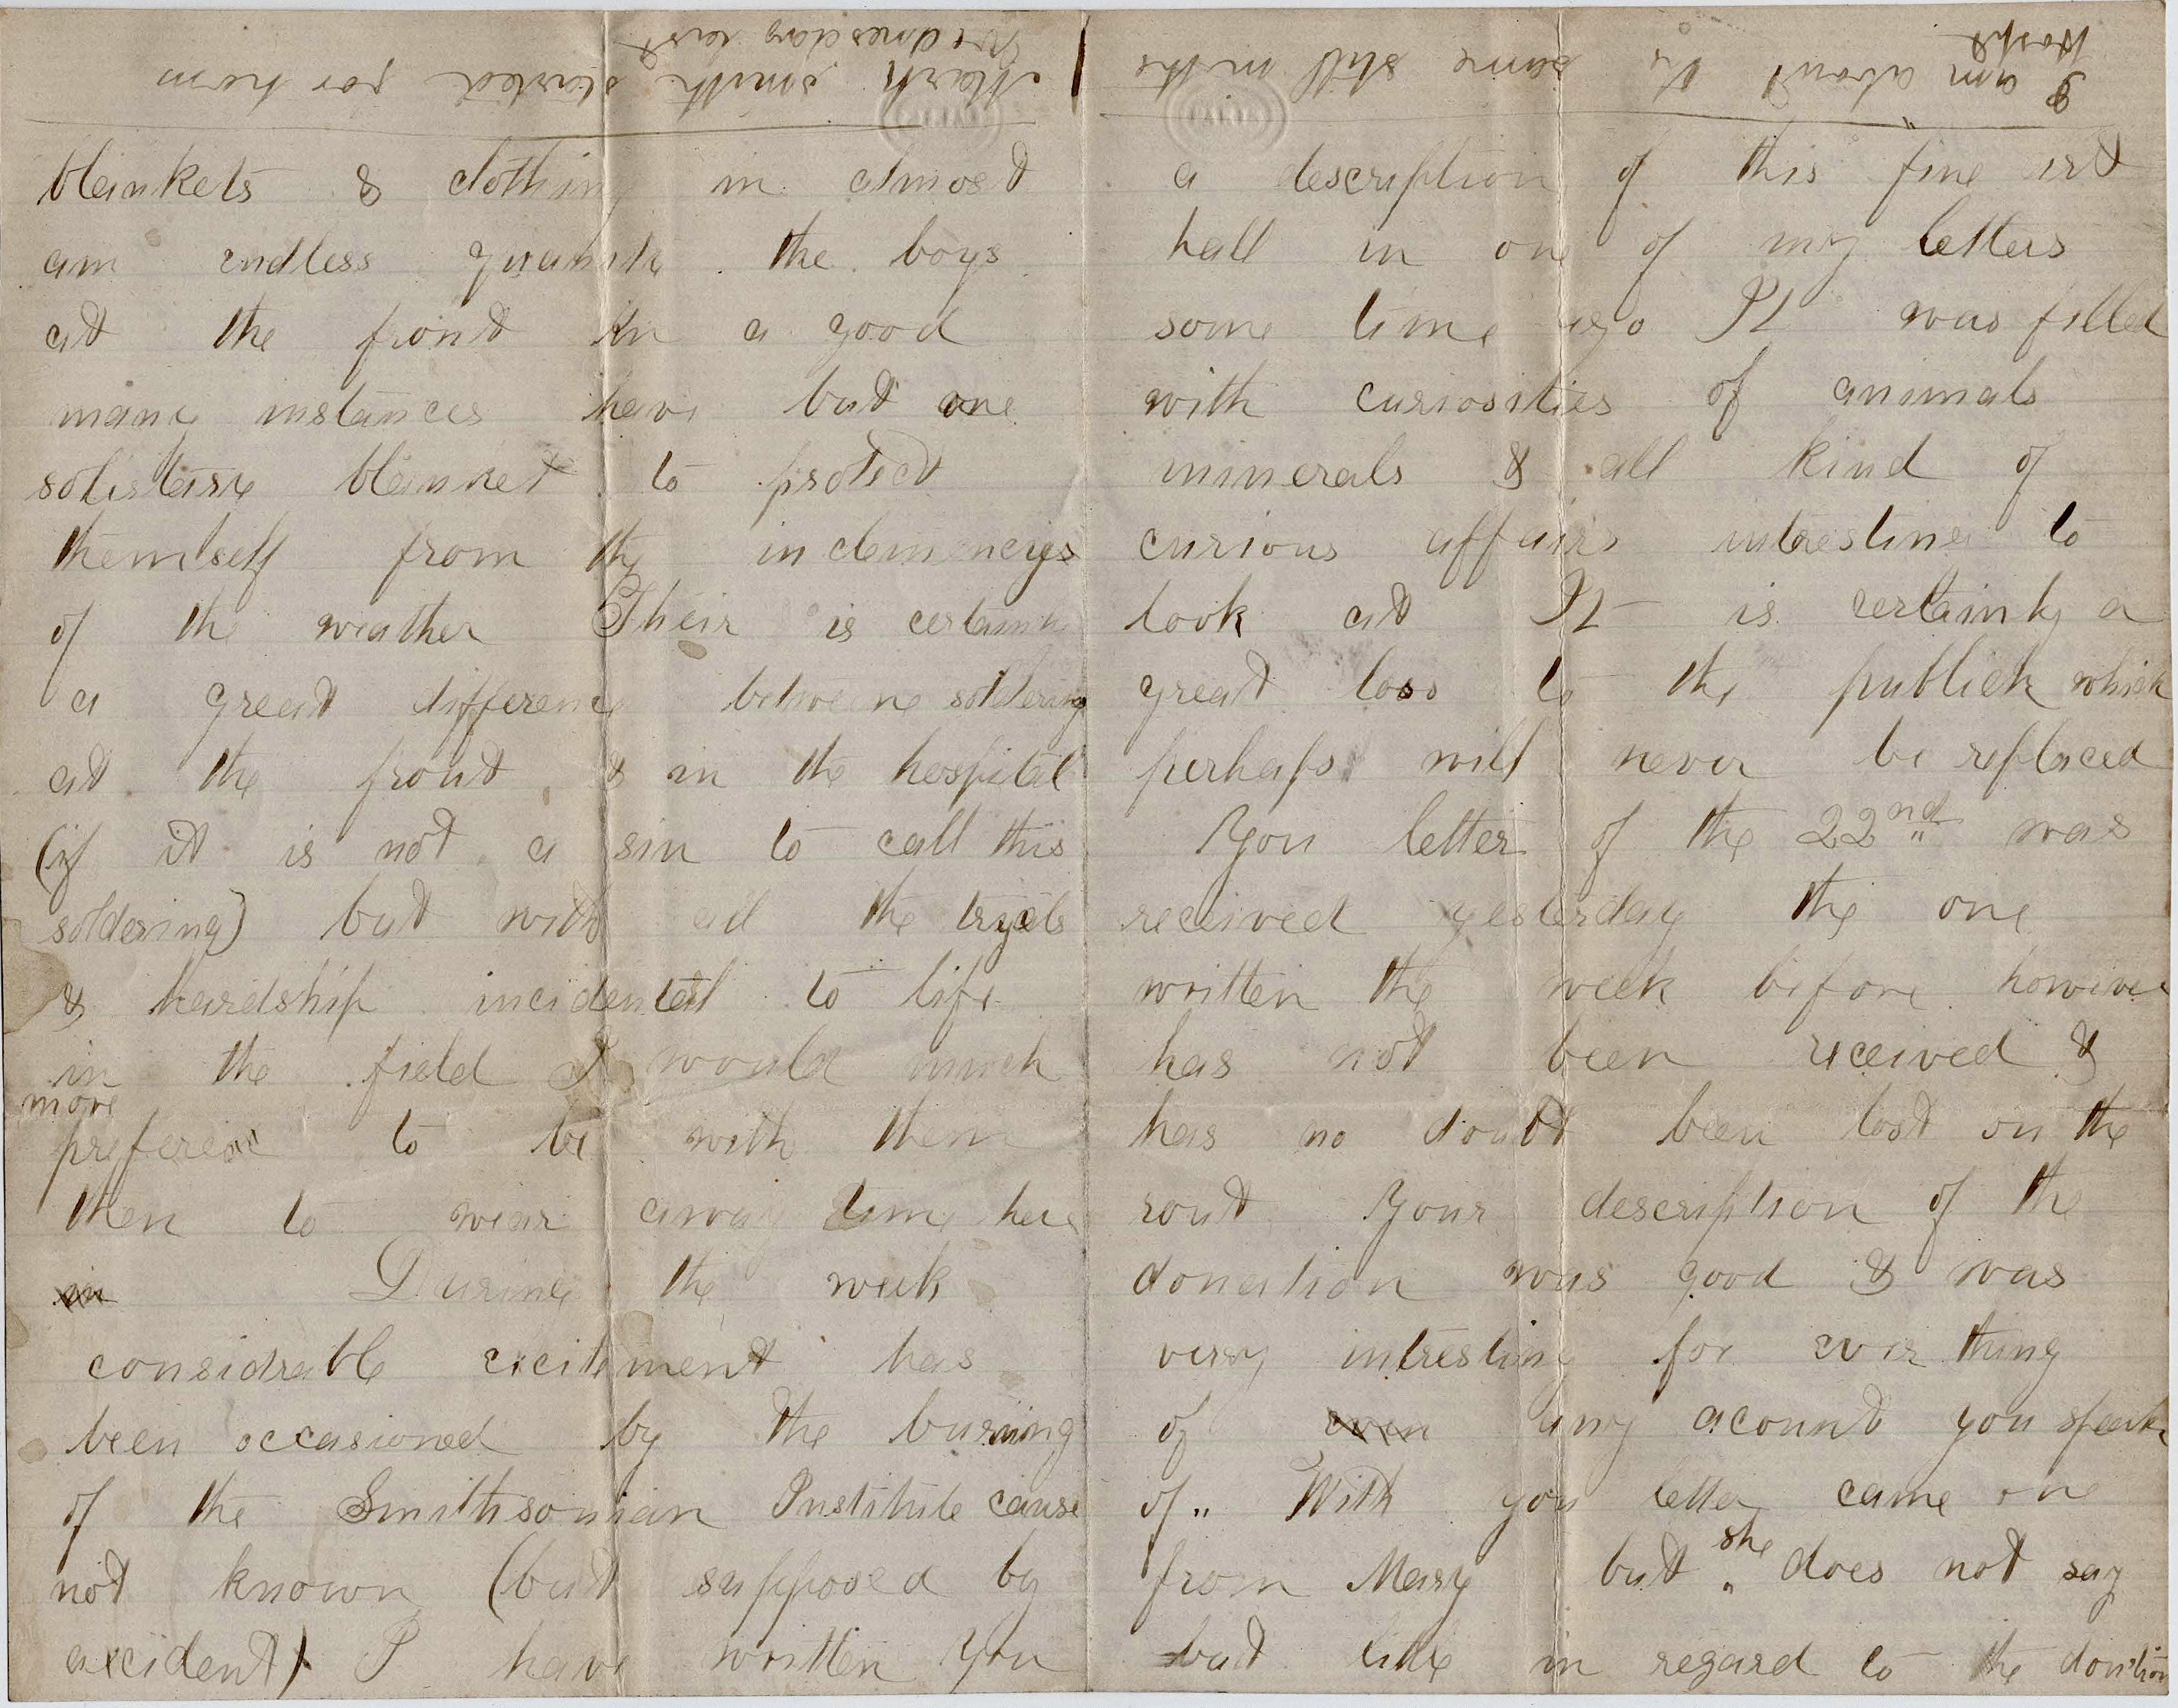 blankets & clothing in almost
am endless quantity the boys
at the front in a good
many instances have but one
solistary blanket to protect
themself from the inclemencys
of the weather Their is certainly
a great difference betweene soldering
at the front & in the hospital
(if it is not a sin to call this
soldering) but with all the tryels
& hardship incidental to life
in the field I would much
more
prefere to be with them
then to wear away time here
in During the week
considrable excitement has
been occasioned by the burning
of the Smithsonian Institute cause
not known (but supposed by
accident) I have written you
a description of this fine
hall in one of my letters
some time ago It was filled
with curiosities of animals
minerals & all kind of
curious affairs intresting to
look at It is certainly a
great loss to the publick which
perhaps will never be replaced
You letter of the 22nd was
received yesterday the one
written the week before however
has not been received &
has no doubt been lost on the
rout Your description of the
donation was good & was
very intresting for ever thing
of even any acount you speak
of " With you letter came one
from Mary but she does not say
but little in regard to the donation
I am about the same still in the
Hospt
Mark Smith started for hom
Wednesday last
PARIAN
PARIAN